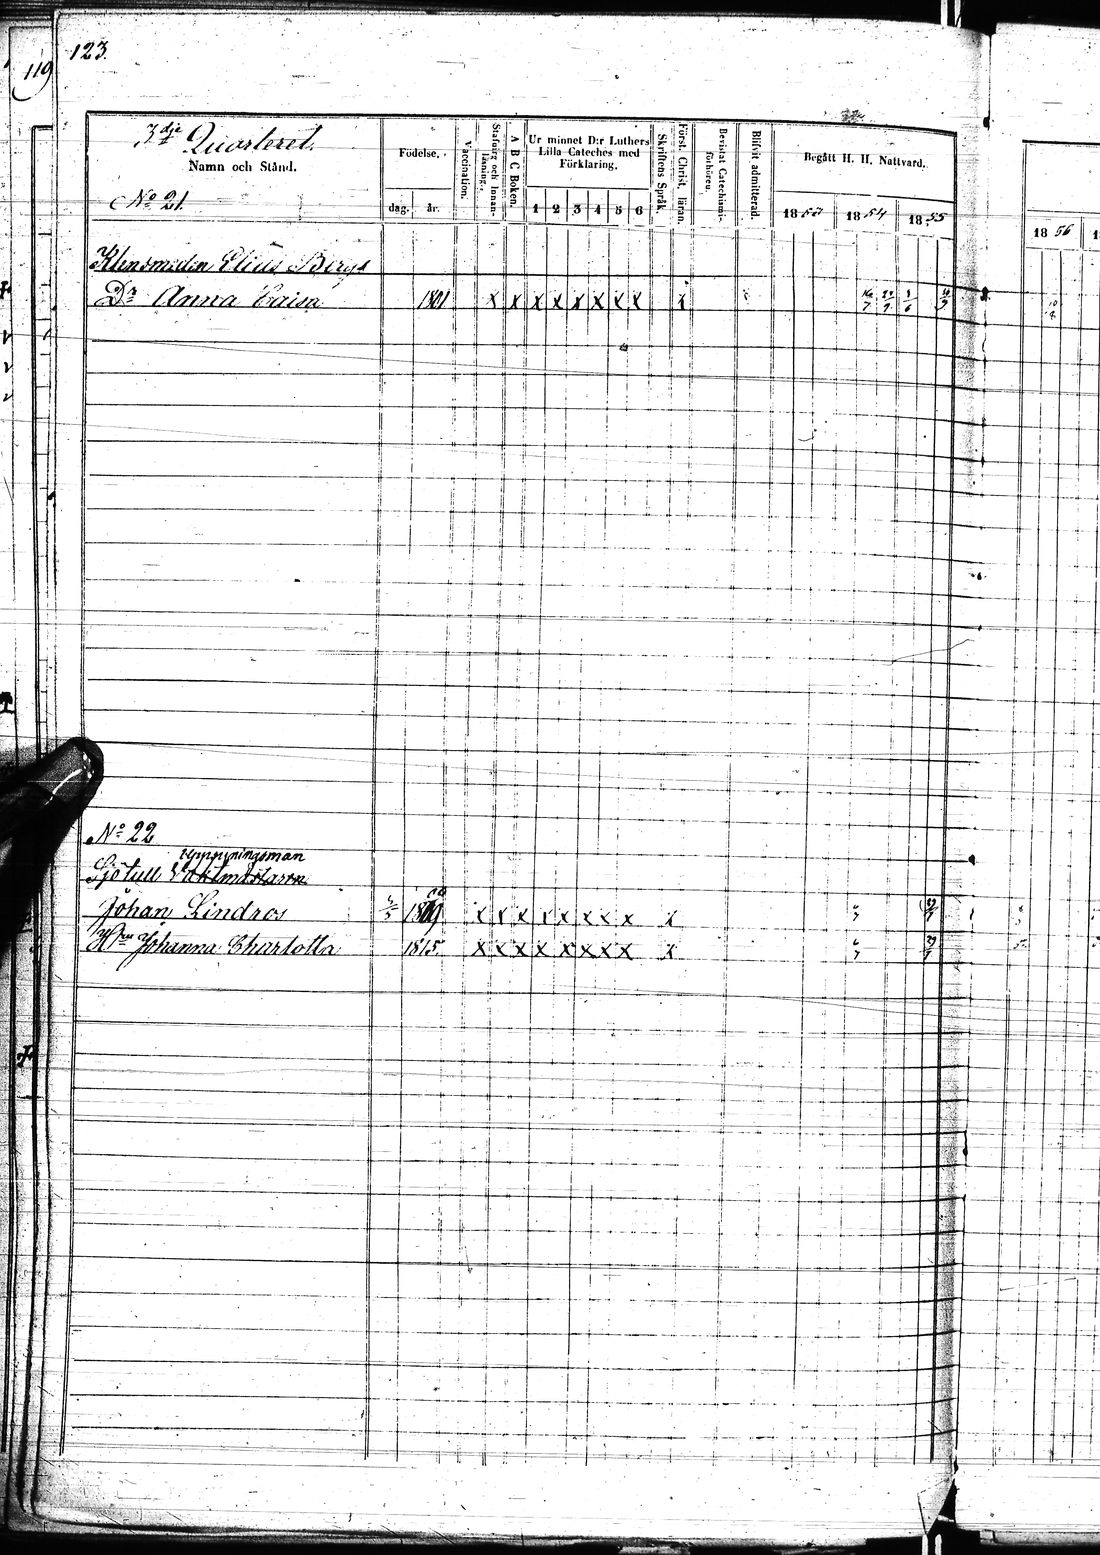 119
123.
3dje Quarteret.
Namn och Stånd.
Födelse.
dag. år.
Vaccination.
Stafning och Innan-läsning.
A B C Boken.
Ur minnet D:r Luthers
Lilla Cateches med
Förklaring.
1 2 3 4 5 6
Skriftens Språk.
Först. Christ. läran.
Bevistat Catechismi-förhören.
Blifvit admitterad.
Begått H. H. Nattvard.
1853 1854 1855
1856
No 21.
Klensmeden Elias Bergs
Dr Anna Caisa 1801 x x x x x x x x x
No 22
Uppsyningsman
Sjötull Vaktmästaren
Johan Lindros 1809 x x x x x x x x x
Hru Johanna Charlotta 1815. x x x x x x x x x